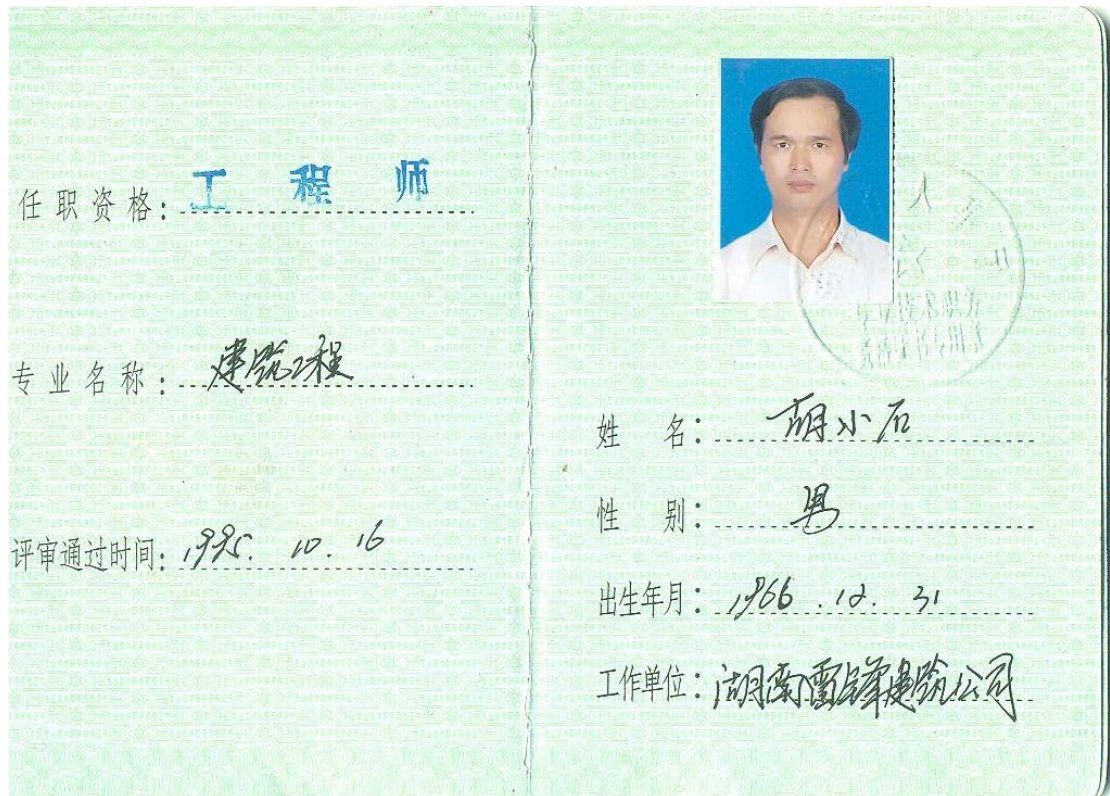 任职资格: 工程师
专业名称: 建筑工程
评审通过时间: 1995. 10. 16
姓名: 胡小石
性别: 男
出生年月: 1966. 12. 31
工作单位: 湖南雷锋建筑公司